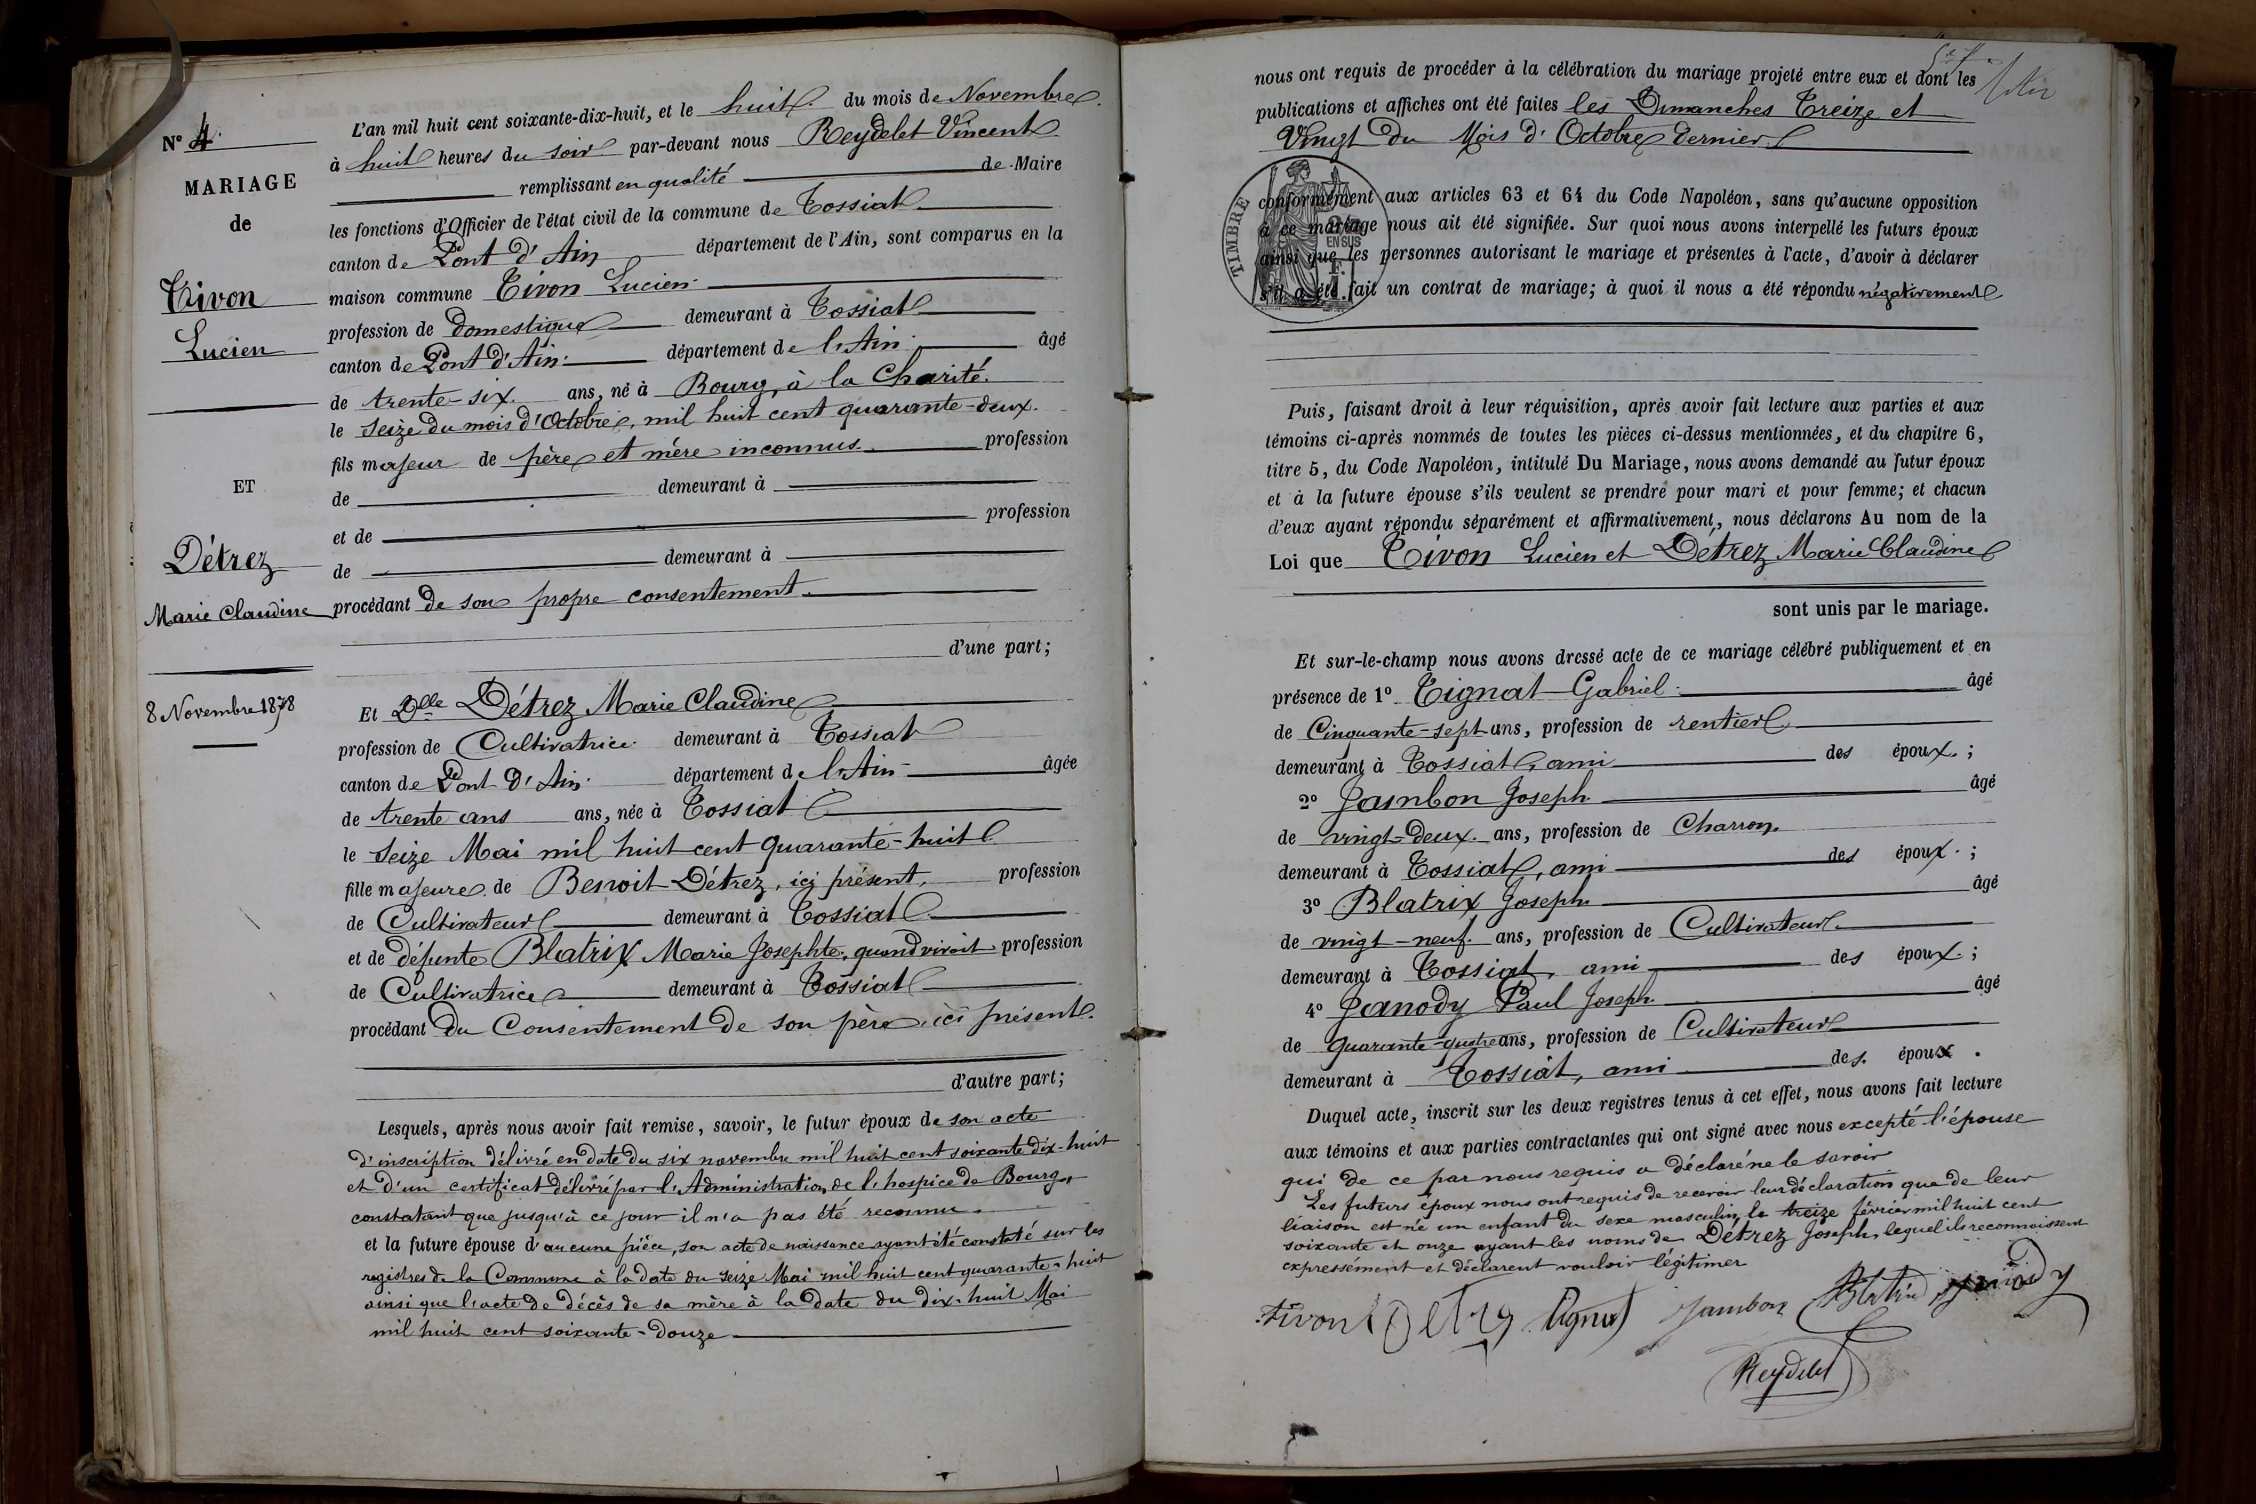 N° 4
MARIAGE
de
Tivon
Lucien
ET
Détrez
Marie Claudine
8 Novembre 1878
L'an mil huit cent soixante-dix-huit, et le huit du mois de Novembre
à huit heures du soir par-devant nous Reydelet Vincent
remplissant en qualité de Maire
les fonctions d'Officier de l'état civil de la commune de Tossiat
canton de Pont d'Ain département de l'Ain, sont comparus en la
maison commune Tivon Lucien
profession de domestique demeurant à Tossiat
canton de Pont d'Ain département de l'Ain âgé
de trente-six ans, né à Bourg, à la Charité
le seize du mois d'Octobre, mil huit cent quarante-deux.
fils majeur de père et mère inconnus profession
de demeurant à
et de profession
de demeurant à
procédant de son propre consentement
d'une part;
Et Dlle Détrez Marie Claudine
profession de Cultivatrice demeurant à Tossiat
canton de Pont d'Ain département de l'Ain âgée
de trente ans ans, née à Tossiat
le seize Mai mil huit cent quarante-huit
fille majeure de Benoit Détrez, ici présent, profession
de Cultivateur demeurant à Tossiat
et de défunte Blatrix Marie Josephte, quand vivait profession
de Cultivatrice demeurant à Tossiat
procédant du Consentement de son père, ici présent.
d'autre part;
Lesquels, après nous avoir fait remise, savoir, le futur époux de son acte
d'inscription délivré en date du six novembre mil huit cent soixante dix-huit
et d'un certificat délivré par l'Administration de l'hospice de Bourg,
constatant que jusqu'à ce jour il n'a pas été reconnu
et la future épouse d'aucune pièce, son acte de naissance ayant été constaté sur les
registres de la Commune à la date du seize Mai mil huit cent quarante-huit
ainsi que l'acte de décès de sa mère à la date du dix-huit Mai
mil huit cent soixante-douze
nous ont requis de procéder à la célébration du mariage projeté entre eux et dont les
publications et affiches ont été faites les Dimanches Treize et
Vingt du Mois d'Octobre dernier
TIMBRE
EN SUS
conformément aux articles 63 et 64 du Code Napoléon, sans qu'aucune opposition
à ce mariage nous ait été signifiée. Sur quoi nous avons interpellé les futurs époux
ainsi que les personnes autorisant le mariage et présentes à l'acte, d'avoir à déclarer
s'il a été fait un contrat de mariage; à quoi il nous a été répondu négativement
Puis, faisant droit à leur réquisition, après avoir fait lecture aux parties et aux
témoins ci-après nommés de toutes les pièces ci-dessus mentionnées, et du chapitre 6,
titre 5, du Code Napoléon, intitulé Du Mariage, nous avons demandé au futur époux
et à la future épouse s'ils veulent se prendre pour mari et pour femme; et chacun
d'eux ayant répondu séparément et affirmativement, nous déclarons Au nom de la
Loi que Tivon Lucien et Détrez Marie Claudine
sont unis par le mariage.
Et sur-le-champ nous avons dressé acte de ce mariage célébré publiquement et en
présence de 1° Tignat Gabriel âgé
de Cinquante-sept ans, profession de rentier
demeurant à Tossiat, ami des époux;
2° Jambon Joseph âgé
de vingt-deux ans, profession de Charron
demeurant à Tossiat, ami des époux;
3° Blatrix Joseph âgé
de vingt-neuf ans, profession de Cultivateur
demeurant à Tossiat, ami des époux;
4° Janody Paul Joseph âgé
de quarante-quatre ans, profession de Cultivateur
demeurant à Tossiat, ami des époux.
Duquel acte, inscrit sur les deux registres tenus à cet effet, nous avons fait lecture
aux témoins et aux parties contractantes qui ont signé avec nous excepté l'épouse
qui de ce par nous requis a déclaré ne le savoir
Les futurs époux nous ont requis de recevoir leur déclaration que de leur
liaison est né un enfant du sexe masculin, le treize février mil huit cent
soixante et onze ayant les noms de Détrez Joseph, lequel ils reconnaissent
expressément et déclarent vouloir légitimer
Tivon L Detrez Tignat Jambon Blatrix Janody
Reydelet